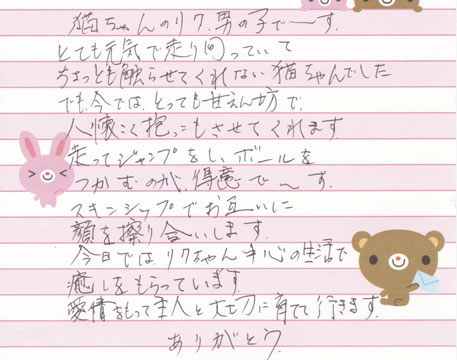 猫ちゃんのリク.男の子で〜す.
とても元気で走り回っていて
ちょっとも触らせてくれない猫ちゃんでした
でも今では、とっても甘えん坊で、
人懐こく抱っこもさせてくれます
走ってジャンプをし、ボールを
つかむのが、得意で〜す.
スキンシップでお互いに
顔を擦り合いします.
今日では、リクちゃん中心の生活で
癒しをもらっています.
愛情をもって主人と大切に育てて行きます.
ありがとう.